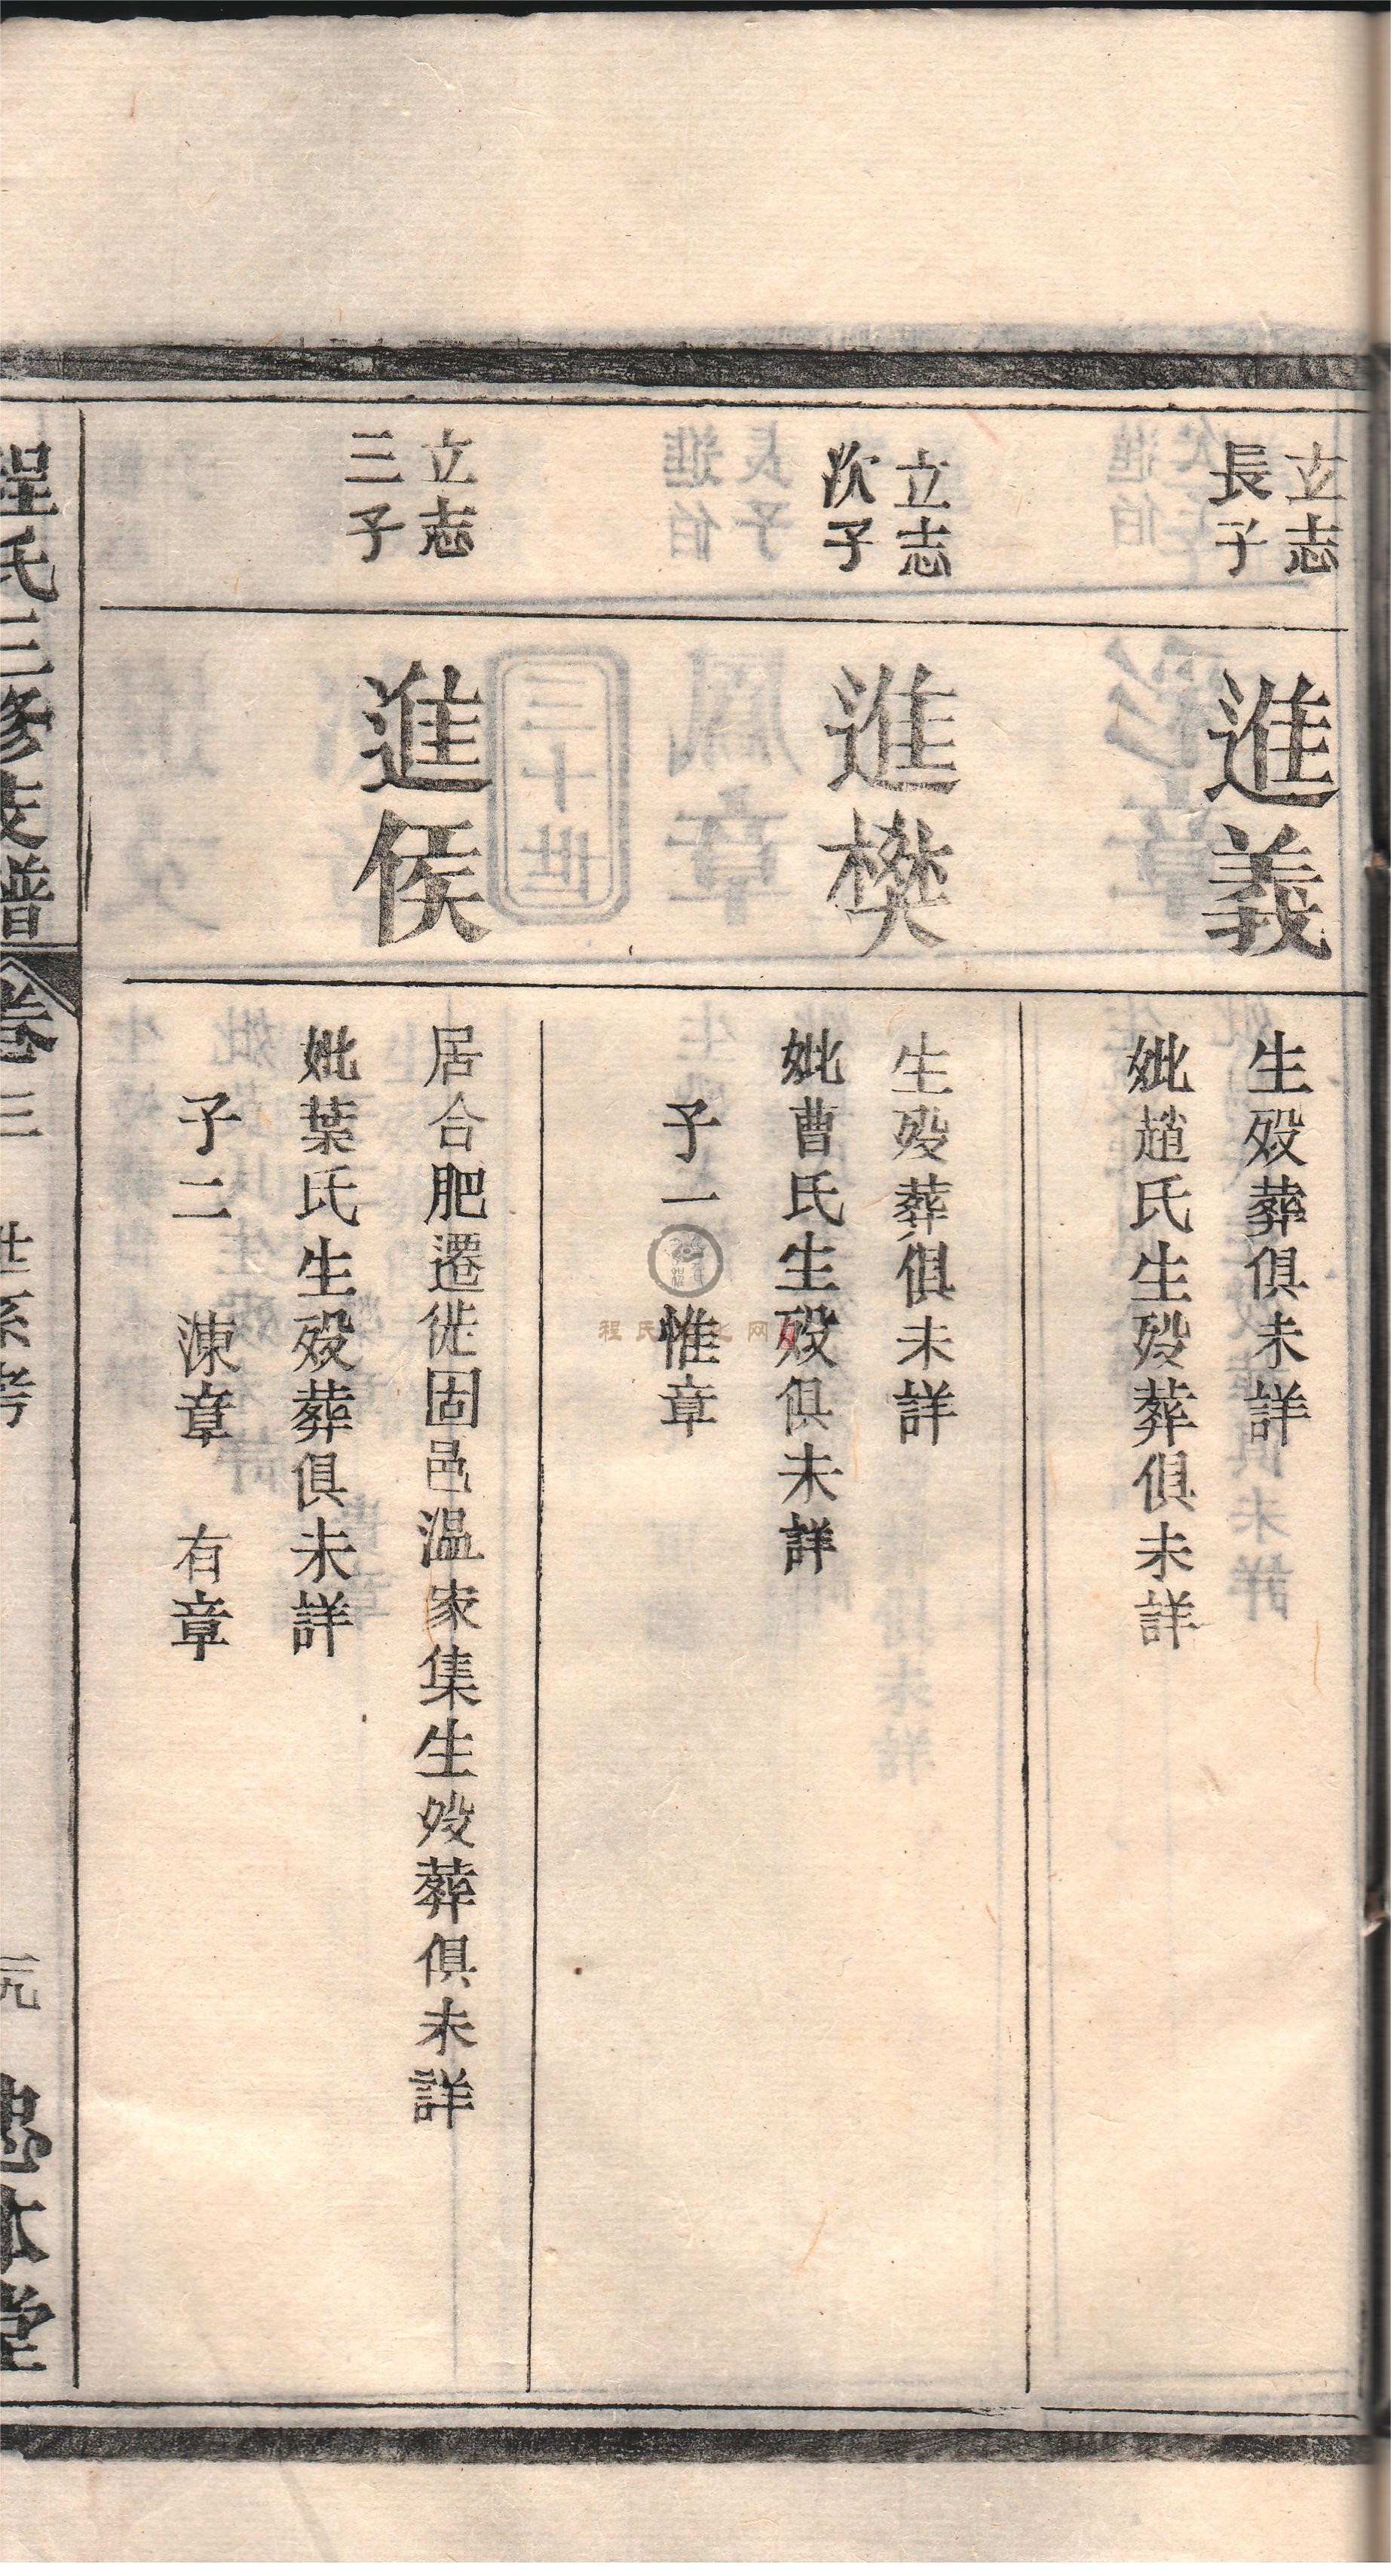 立志
長子
進義
生歿葬俱未詳
妣趙氏生歿葬俱未詳
立志
次子
進樊
生歿葬俱未詳
妣曹氏生歿俱未詳
子一 惟章
立志
三子
進侯
居合肥遷徙固邑溫家集生歿葬俱未詳
妣葉氏生歿葬俱未詳
子二 涷章 有章
程氏三修支譜
卷三 世系考
忠本堂